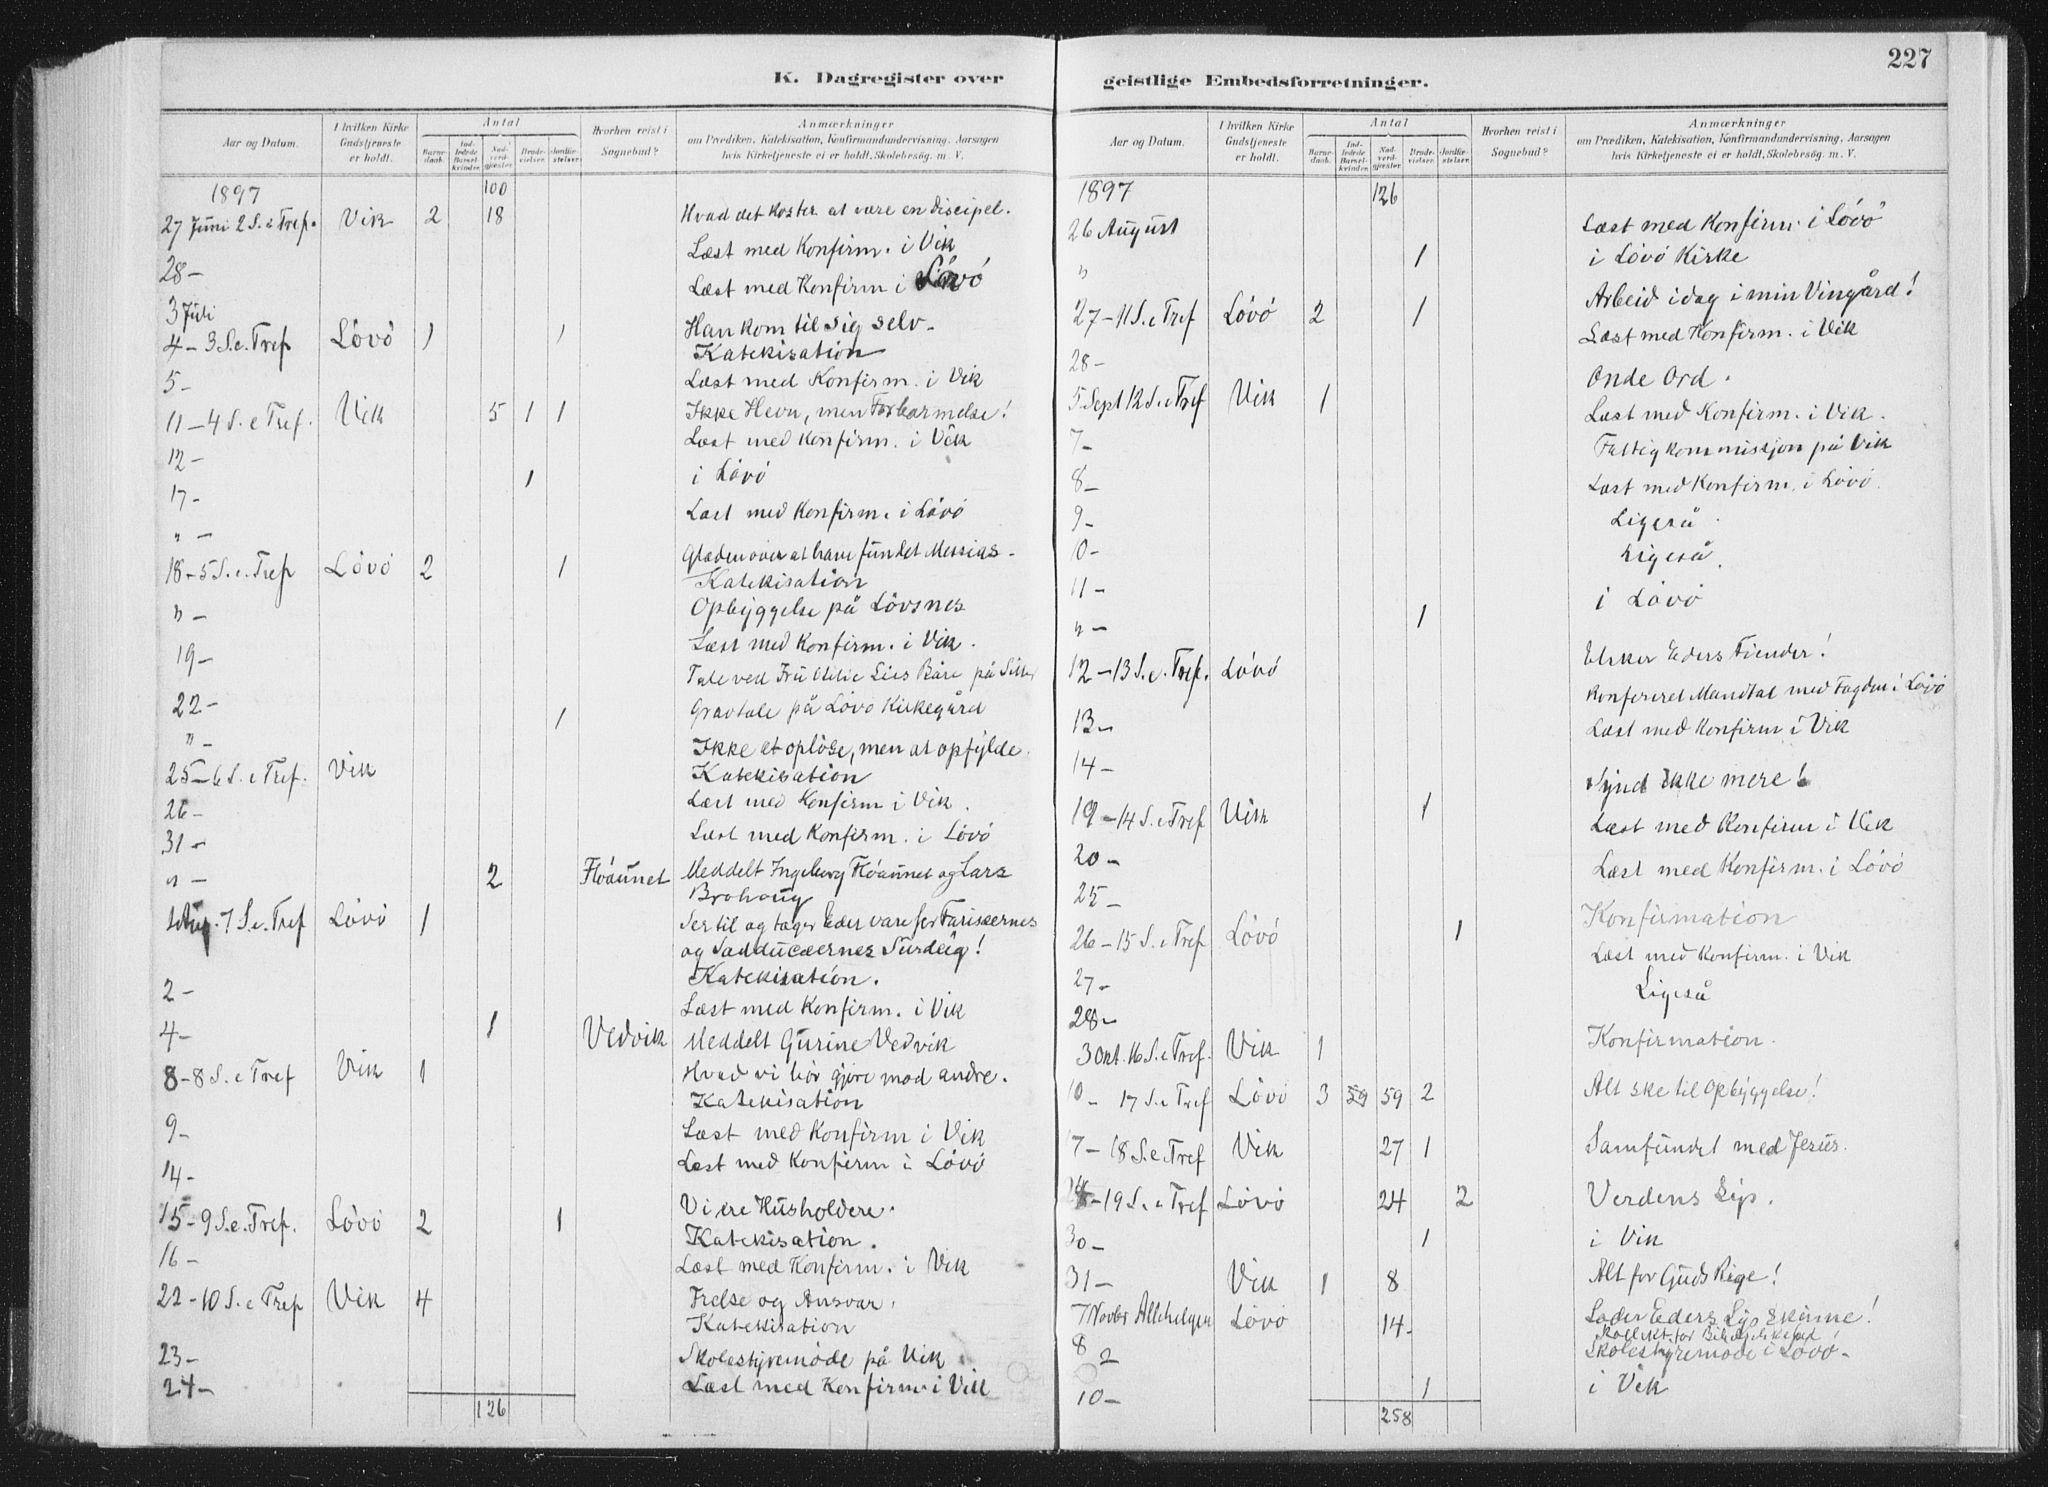 K. Dagregister over
Aar og Datum.
I hvilken Kirke Gudstjeneste er holdt.
Antal
Barnedaab.
Indledede Barselkvinder.
Nadverdgjester.
Brudevielser.
Jordfæstelser.
Hvorhen reist i Sognebud?
Anmærkninger
om Prædiken, Katekisation, Konfirmandundervisning, Aarsagen
hvis Kirketjeneste ei er holdt, Skolebesøg. m. V.
1897 100
27 Juni 2 S. e Tref. Vik 2 18 Hvad det koster at være en Discipel.
28 – Læst med Konfirm. i Vik
3 Juli Læst med Konfirm i Lövö
4 – 3 S. e. Tref Lövö 1 1 Han kom til sig selv.
Katekisation
5 – Læst med Konfirm. i Vik
11 – 4 S. e Tref. Vik 5 1 1 Ikke Hevn, men Forbarmelse!
12 – Læst med Konfirm. i Vik
17 – 1 i Lövö
" – Læst med Konfirm. i Lövö
18 – 5 S. e. Tref Lövö 2 1 Glæden over at have fundet Messias –
Katekisation
" – Opbyggelse på Lövsnes
19 – Læst med Konfirm. i Vik.
22 – Tale ved Fru Lies Båre på
" – 1 Gravtale på Lövö Kirkegård
25 – 6 S. e Tref. Vik Ikke at oplöse, men at opfylde.
Katekisation
26 – Læst med Konfirm i Vik.
31 – Læst med Konfirm. i Lövö
" – 2 Flöaunet Meddelt Ingeborg Flöaunet og Lars
Brohaug
1 Aug. 7 S. e. Tref Lövö 1 Ser til og tager Eder vare for Farisæernes
og Sadducæernes Surdeig!
Katekisation.
2 – Læst med Konfirm. i Vik
4 – 1 Vedvik Meddelt Gurine Vedvik
8 – 8 S. e Tref Vik 1 Hvad vi bör gjöre mod andre.
Katekisation
9 – Læst med Konfirm i Vik
14 – Læst med Konfirm i Lövö
15 – 9 S. e. Tref. Lövö 2 1 Vi ere Husholdere.
Katekisation.
16 – Læst med Konfirm. i Vik
22 – 10 S. e Tref Vik 4 Frelse og Ansvar.
Katekisation
23 – Skolestyremöde på Vik
24 – Læst med Konfirm i Vik
126
227
geistlige Embedsforretninger.
Aar og Datum.
I hvilken Kirke Gudstjeneste er holdt.
Antal
Barnedaab.
Indledede Barselkvinder.
Nadverdgjester.
Brudevielser.
Jordfæstelser.
Hvorhen reist i Sognebud?
Anmærkninger
om Prædiken, Katekisation, Konfirmandundervisning, Aarsagen
hvis Kirketjeneste ei er holdt, Skolebesøg. m. V.
1897 126
26 August Læst med Konfirm. i Lövö
" 1 i Lövö Kirke
27 – 11 S. e Tref Lövö 2 1 Arbeid idag i min Vingård!
28 – Læst med Konfirm. i Vik
5 Sept 12 S. e Tref Vik 1 Onde Ord.
7 – Læst med Konfirm. i Vik.
8 – Fattigkommissjon på Vik
9 – Læst med Konfirm. i Lövö.
10 – Ligeså.
11 – Ligeså.
" – 1 i Lövö
12 – 13 S. e. Tref. Lövö Elsker Eders Fiender!
13 – Konfereret Mandtal med Fogden i Lövö
14 – Læst med Konfirm i Vik
19 – 14 S. e Tref Vik 1 Synd ikke mere!
20 – Læst med Konfirm i Vik
25 – Læst med Konfirm. i Lövö
26 – 15 S. e Tref Lövö 1 Konfirmation
27 – Læst med Konfirm. i Vik
28 – Ligeså
3 Okt. 16 S. e Tref. Vik 1 Konfirmation.
10 – 17 S. e Tref Lövö 3 59 59 2 Alt ske til Opbyggelse!
17 – 18 S. e Tref Vik 27 1 Samfundet med Jesus.
24 – 19 S. e Tref Lövö 24 2 Verdens Lys.
30 – 1 i Vik
31 – Vik 1 8 Alt for Guds Rige!
7 Novbr Allehelgen Lövö 14 – Lader Eders Lys skinne!
Kollekt for Bibelselskabet
8 – Skolestyremöde i Lövö –
10 – 1 i Vik
258